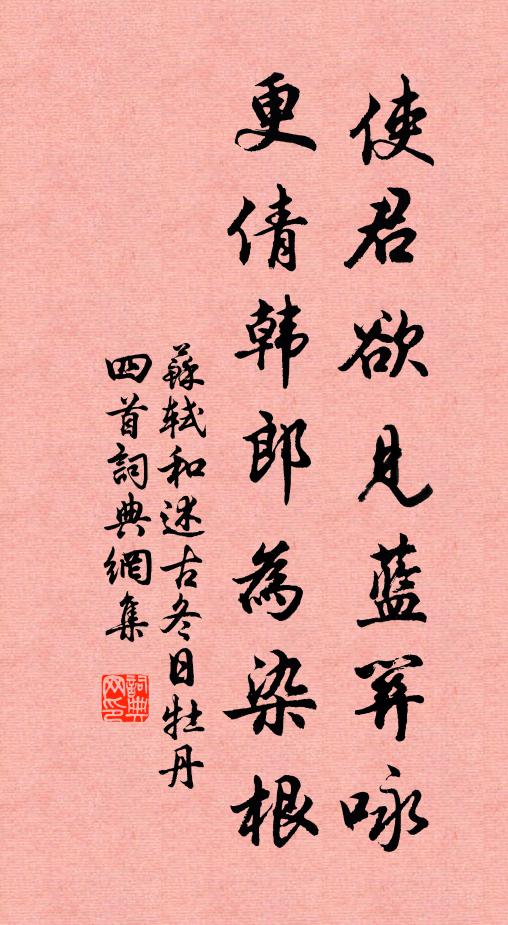 使君欲見藍関咏
更倩韩郎為染根
蘇軾和述古冬日牡丹
四首詞典網集
詞典
网印